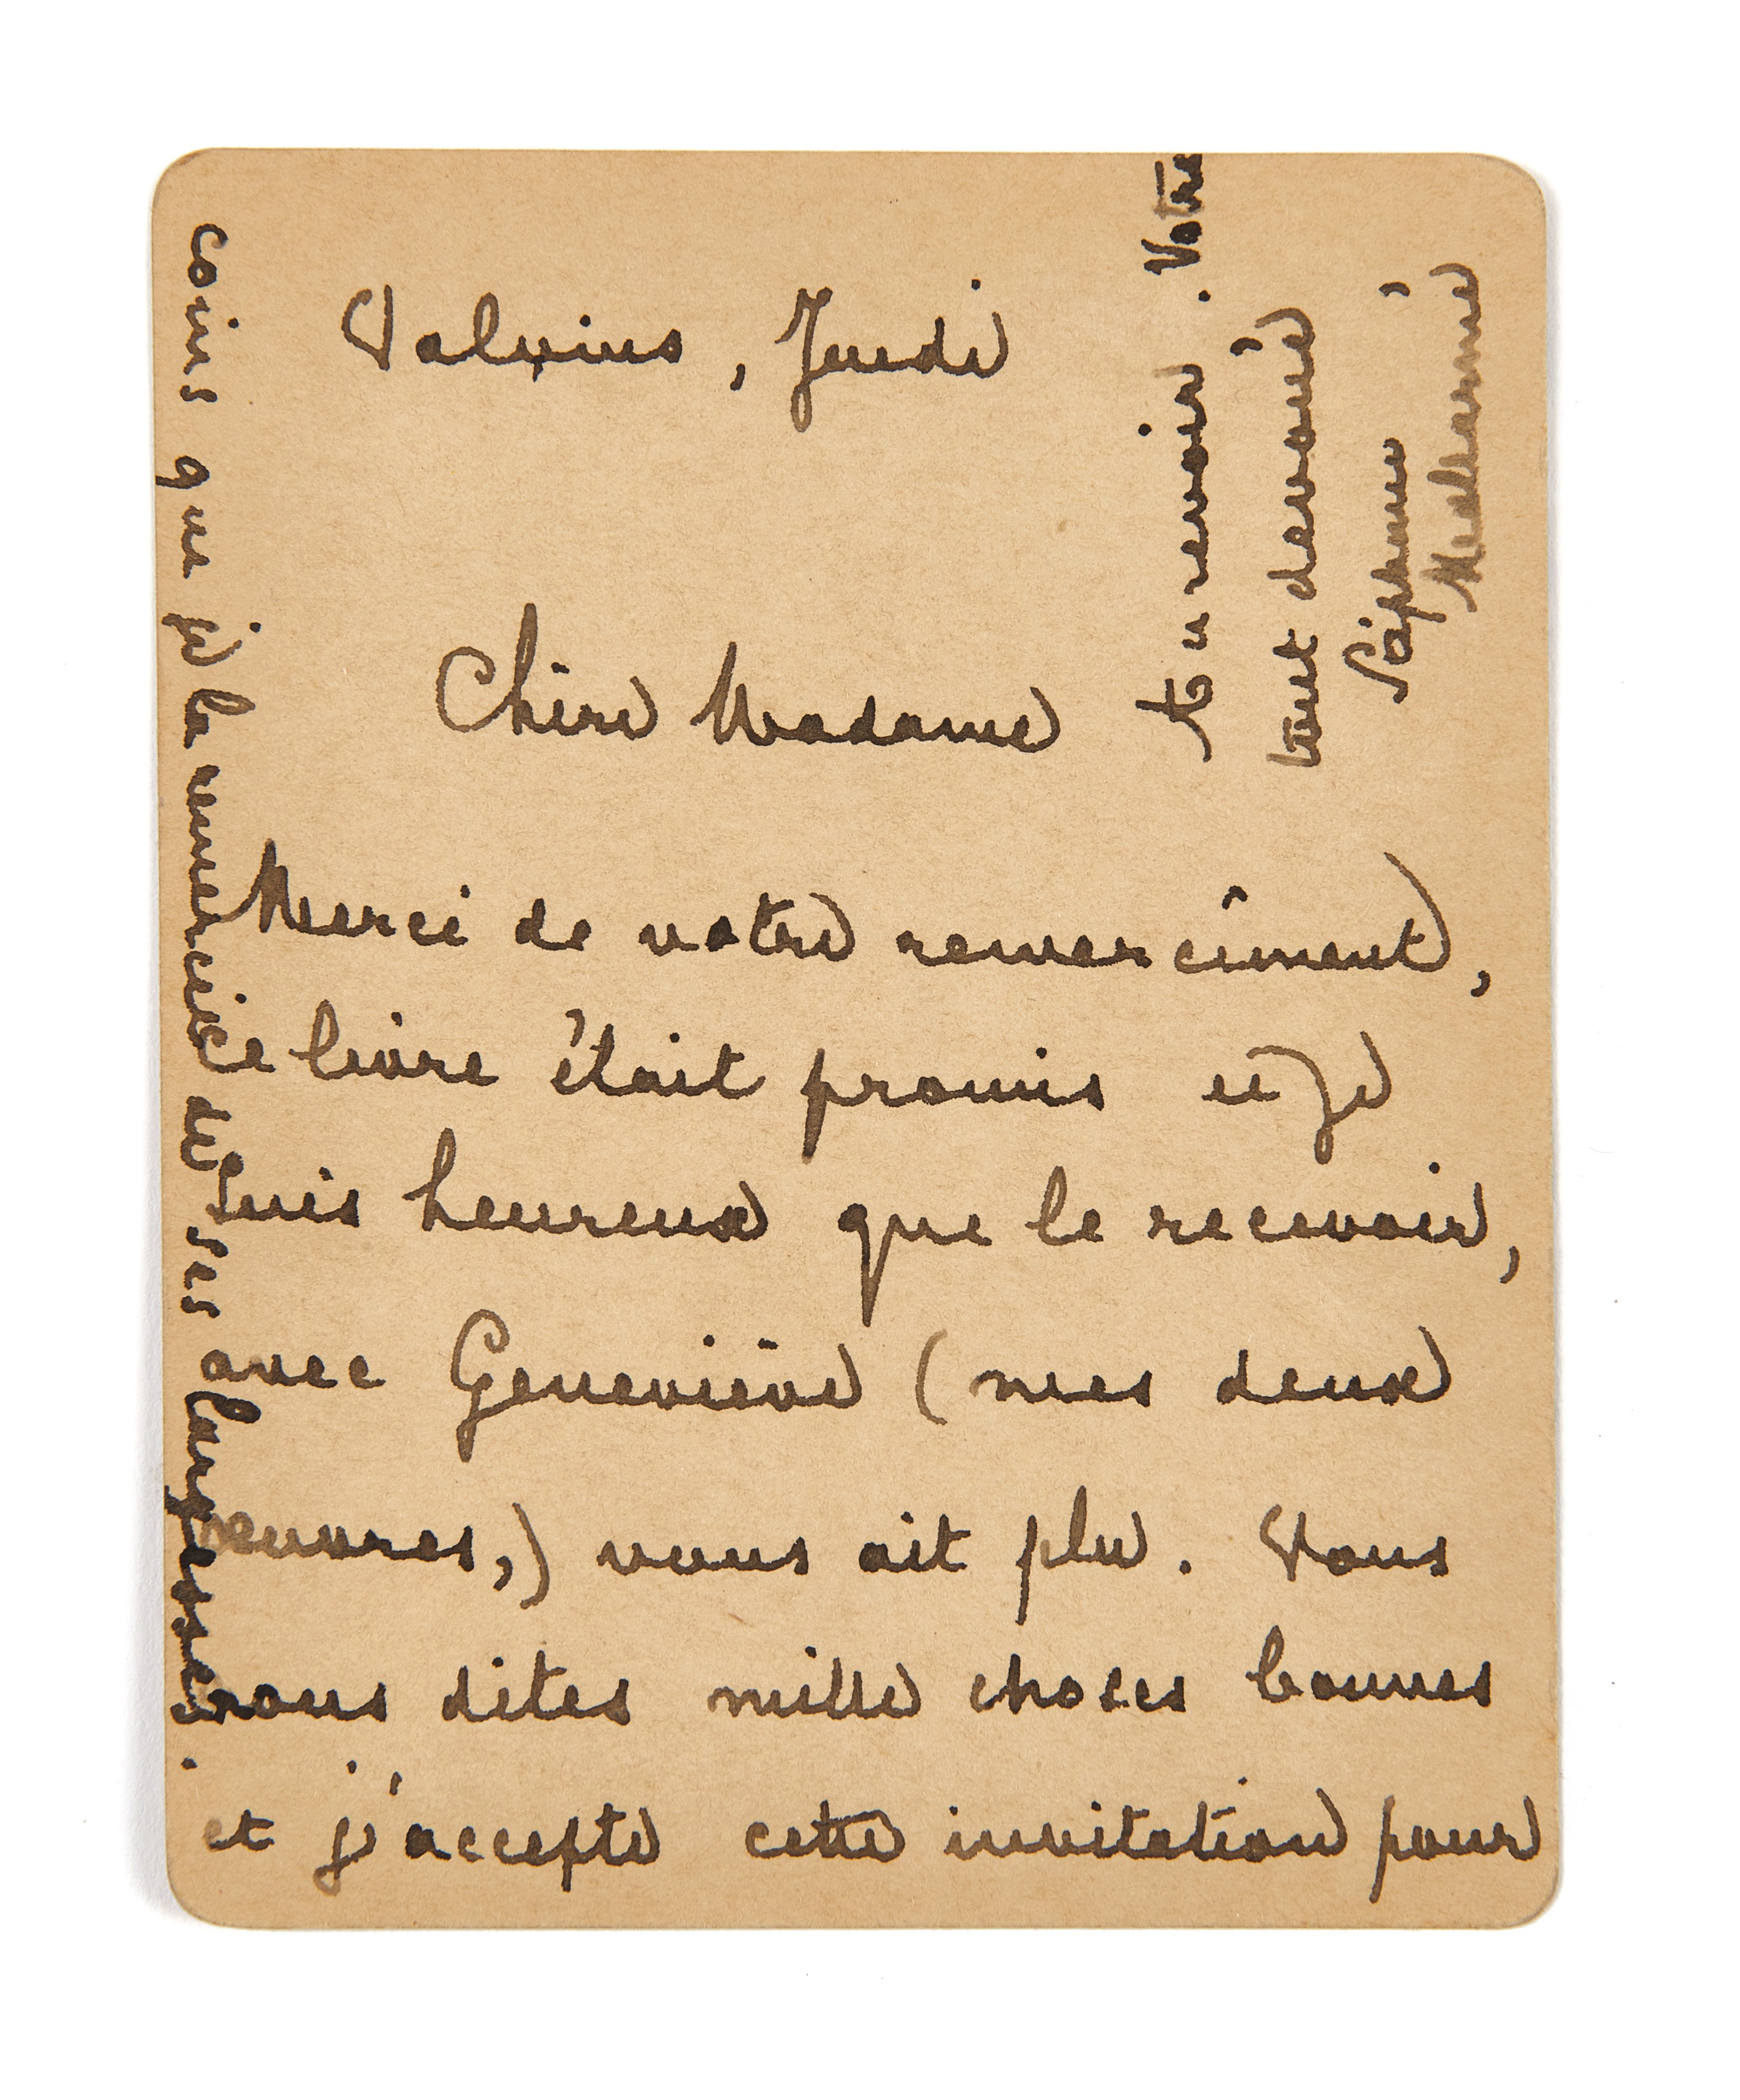 Valvins, Jeudi
Chère Madame
Merci de votre remerciment,
ce livre était promis et je
suis heureux que le recevoir,
avec Geneviève (mes deux
œuvres,) vous ait plu. Vous
nous dites mille choses bonnes
et j'accepte cette invitation pour
coins que je la remercie de ses largesses.
Au revoir. Votre
tout dévoué
Stéphane
Mallarmé